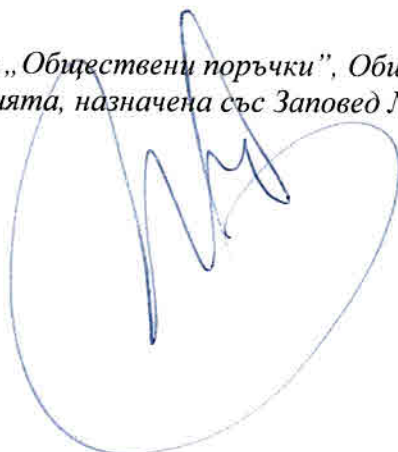 „Обществени поръчки”, Оби
ията, назначена със Заповед №